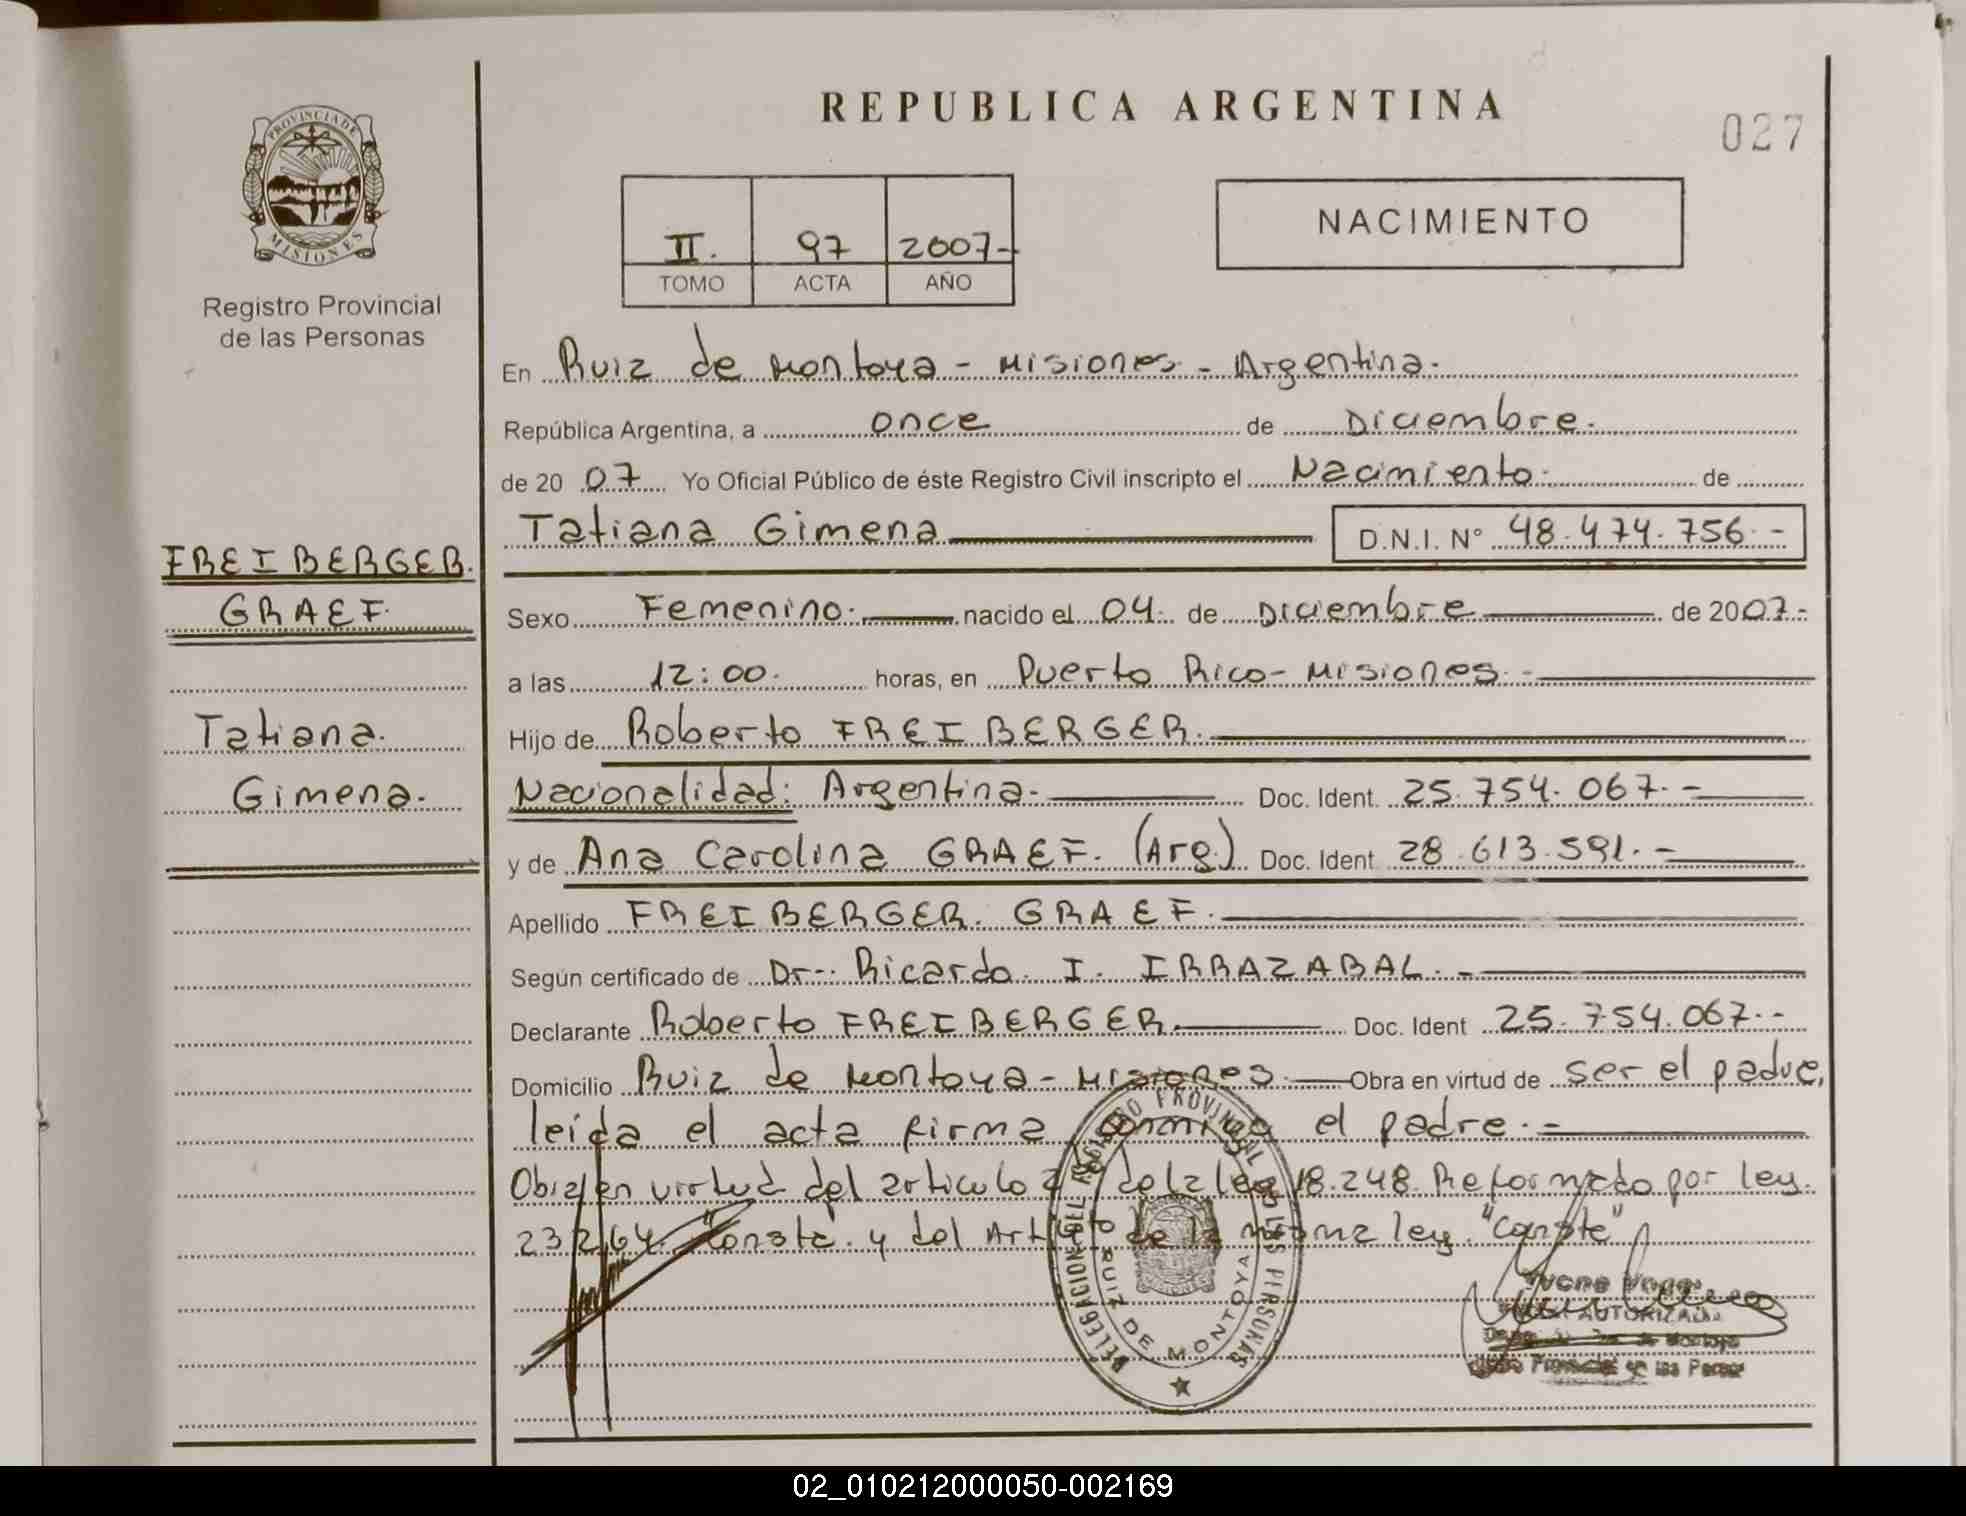 REPUBLICA ARGENTINA
027
PROVINCIA DE
MISIONES
Registro Provincial
de las Personas
II. 97 2007-
TOMO ACTA AÑO
NACIMIENTO
En Ruiz de Montoya - Misiones - Argentina.
República Argentina, a once de Diciembre.
de 20 07 Yo Oficial Público de éste Registro Civil inscripto el Nacimiento. de
Tatiana Gimena D.N.I. N° 48.474.756.-
FREIBERGER.
GRAEF.
Tatiana.
Gimena.
Sexo Femenino. nacido el 04. de Diciembre de 2007.-
a las 12:00. horas, en Puerto Rico - Misiones.-
Hijo de Roberto FREIBERGER.
Nacionalidad: Argentina. Doc. Ident. 25.754.067.-
y de Ana Carolina GRAEF. (Arg.) Doc. Ident 28.613.591.-
Apellido FREIBERGER. GRAEF.
Según certificado de Dr. Ricardo. I. IRRAZABAL.-
Declarante Roberto FREIBERGER. Doc. Ident 25.754.067.-
Domicilio Ruiz de Montoya - Misiones. Obra en virtud de ser el padre,
leída el acta firma conmigo el padre.-
Obra en virtud del articulo de la ley 18.248. Reformado por ley.
23264. "Conste". y del Art de la misma ley. "Conste"
DELEGACION DEL REGISTRO PROVINCIAL DE LAS PERSONAS
RUIZ DE MONTOYA
AUTORIZADA
02_010212000050-002169